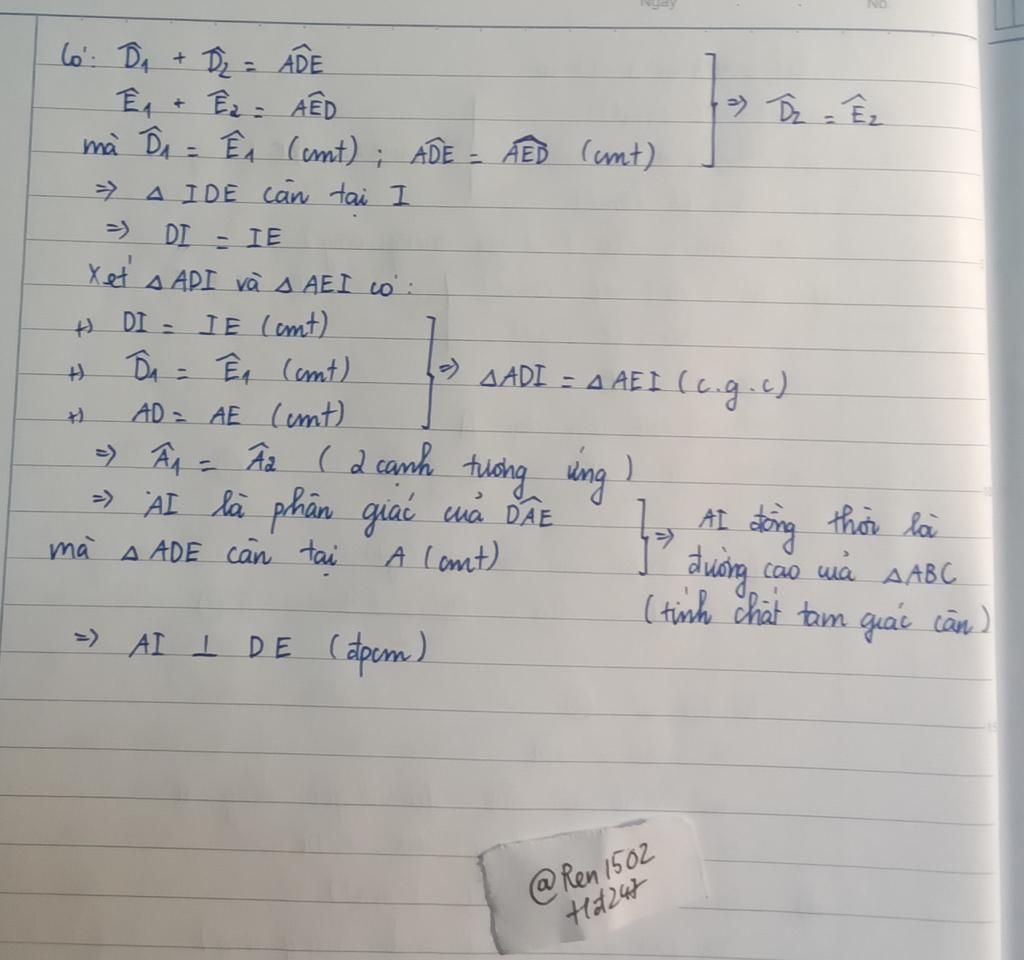 Ngày
No.
Có: D̂₁ + D̂₂ = ADE^
Ê₁ + Ê₂ = AED^
mà D̂₁ = Ê₁ (cmt) ; ADE^ = AED^ (cmt)
=> D̂₂ = Ê₂
=> Δ IDE cân tại I
=> DI = IE
Xét Δ ADI và Δ AEI có:
+) DI = IE (cmt)
+) D̂₁ = Ê₁ (cmt)
+) AD = AE (cmt)
=> ΔADI = ΔAEI (c.g.c)
=> Â₁ = Â₂ ( 2 cạnh tương ứng )
=> AI là phân giác của DAE^
mà Δ ADE cân tại A (cmt)
=> AI đồng thời là
đường cao của ΔABC
(tính chất tam giác cân)
=> AI ⊥ DE (đpcm)
@Ren1502
Hd247